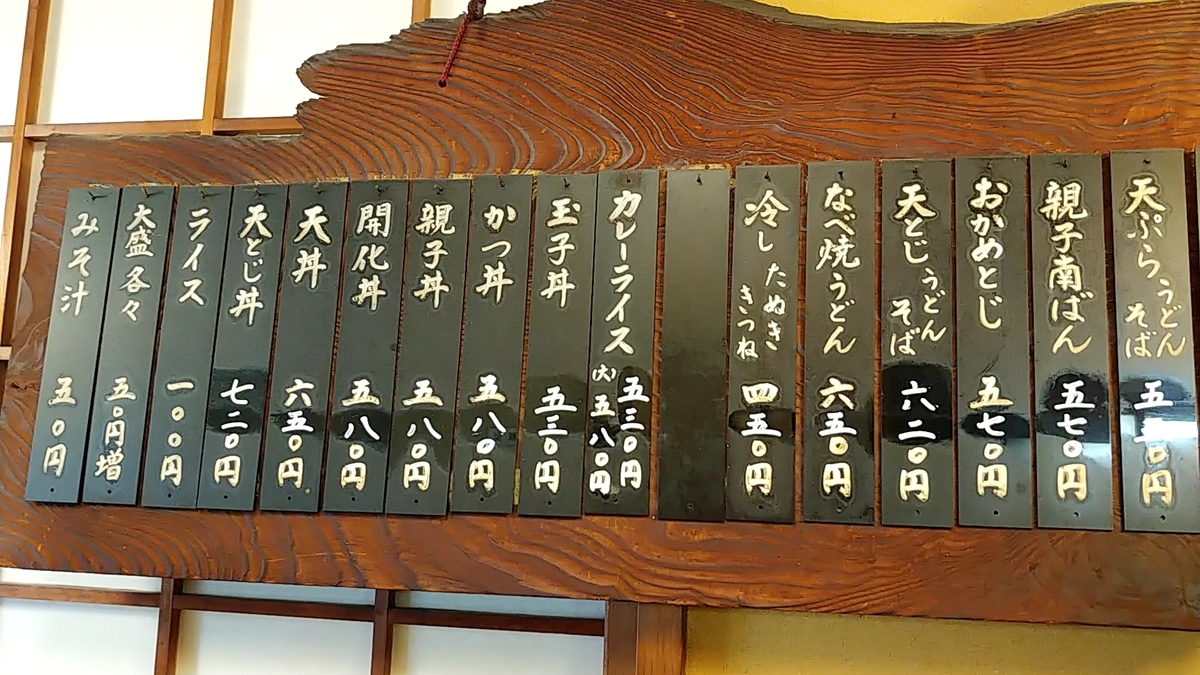 天ぷら うどん そば 五五〇円
親子南ばん 五七〇円
おかめとじ 五七〇円
天とじ うどん そば 六二〇円
なべ焼うどん 六五〇円
冷し たぬき きつね 四五〇円
カレーライス 五三〇円
(大)五八〇円
玉子丼 五三〇円
かつ丼 五八〇円
親子丼 五八〇円
開化丼 五八〇円
天丼 六五〇円
天とじ丼 七二〇円
ライス 一〇〇円
大盛各々 五〇円増
みそ汁 五〇円